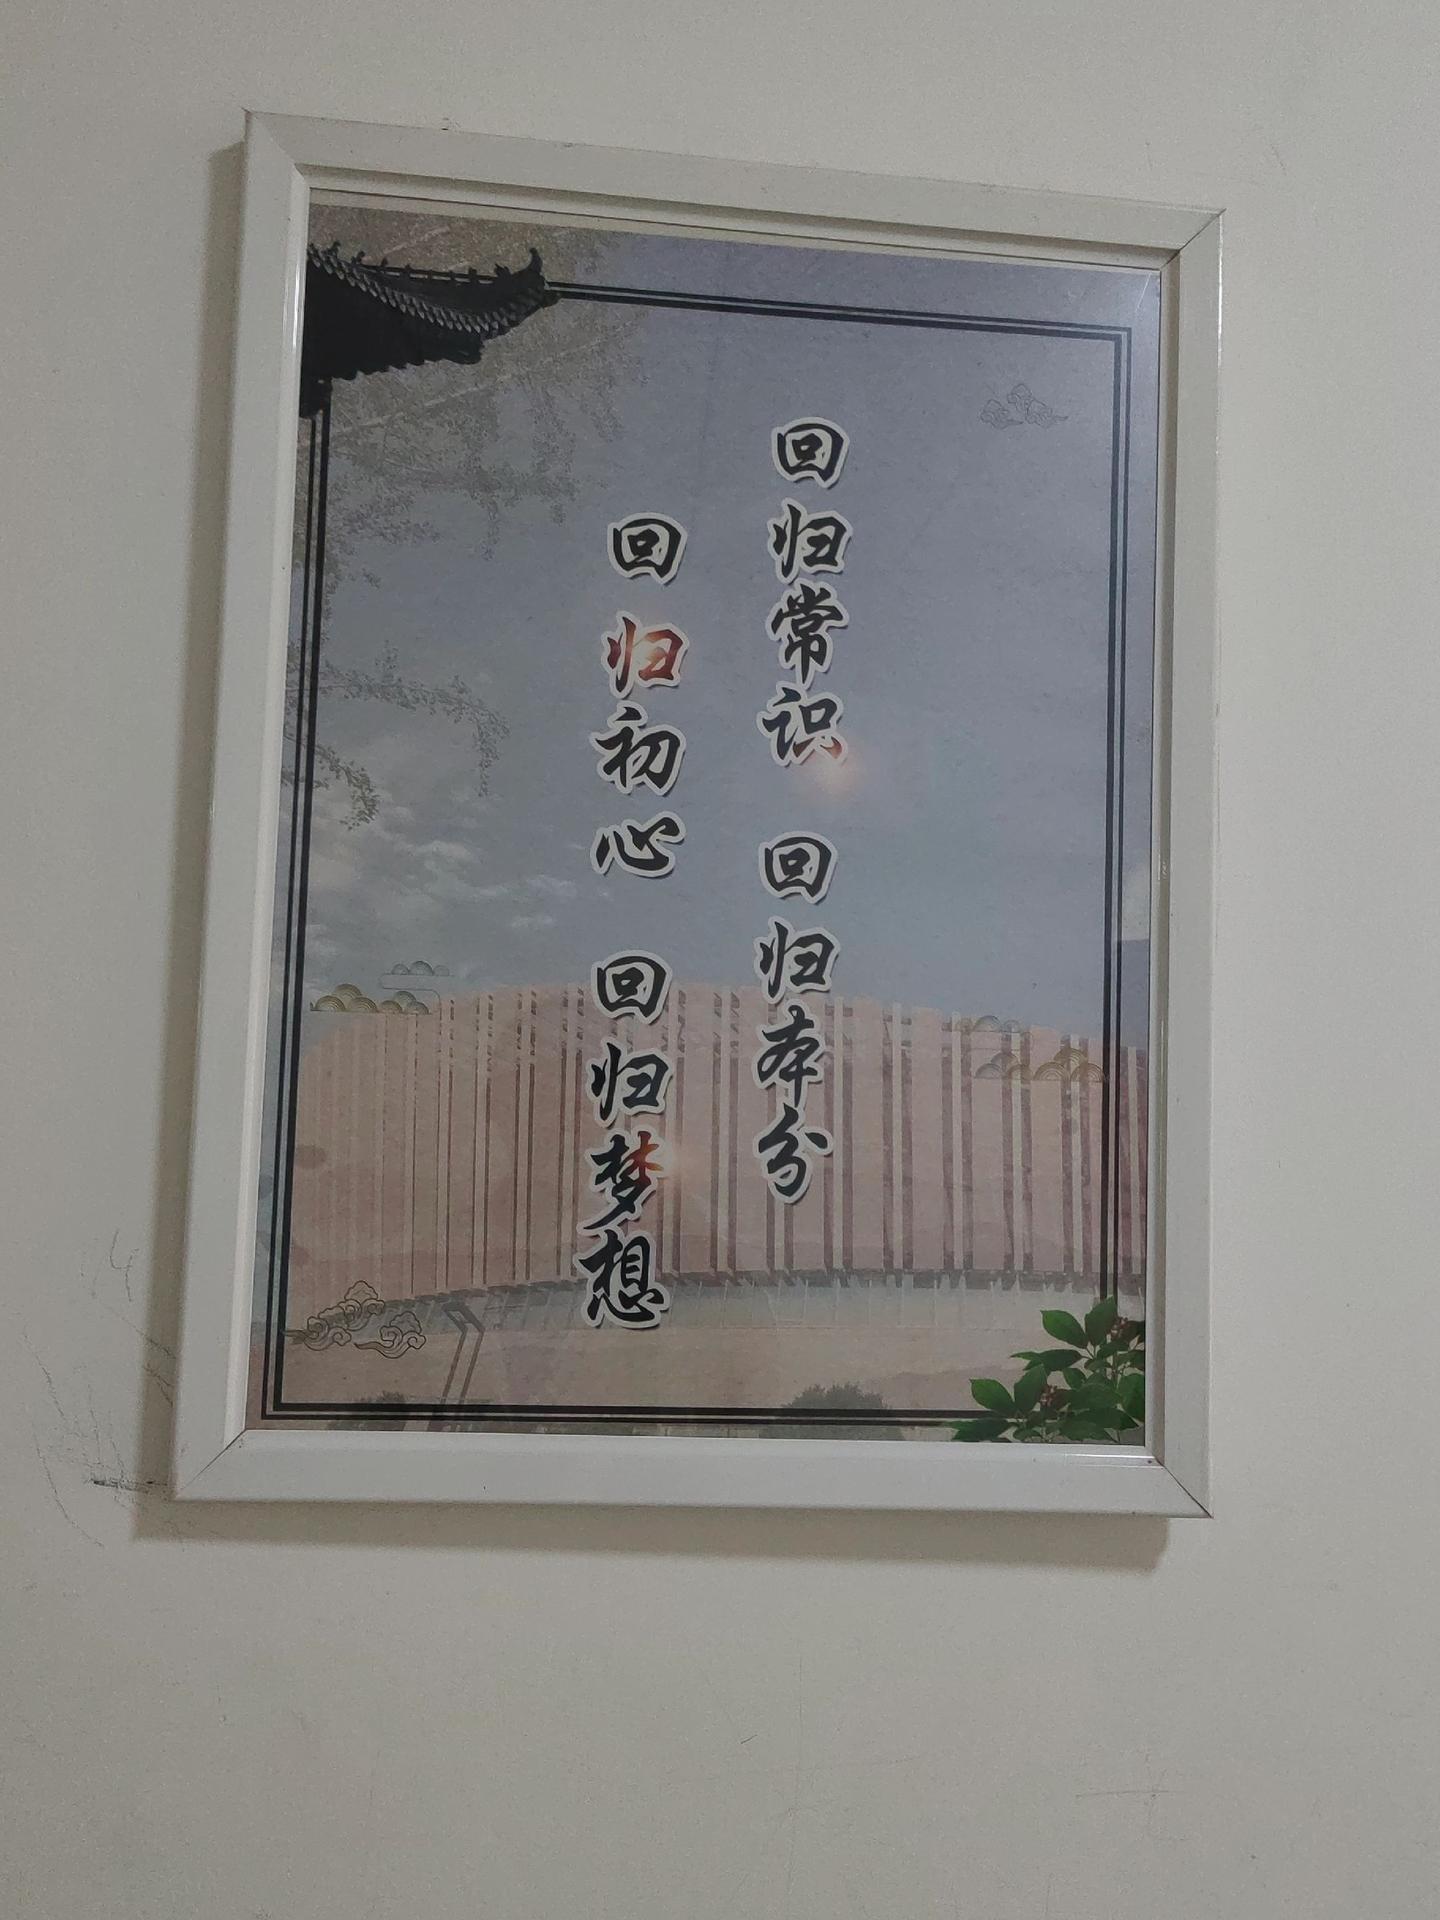 回归常识 回归本分
回归初心 回归梦想